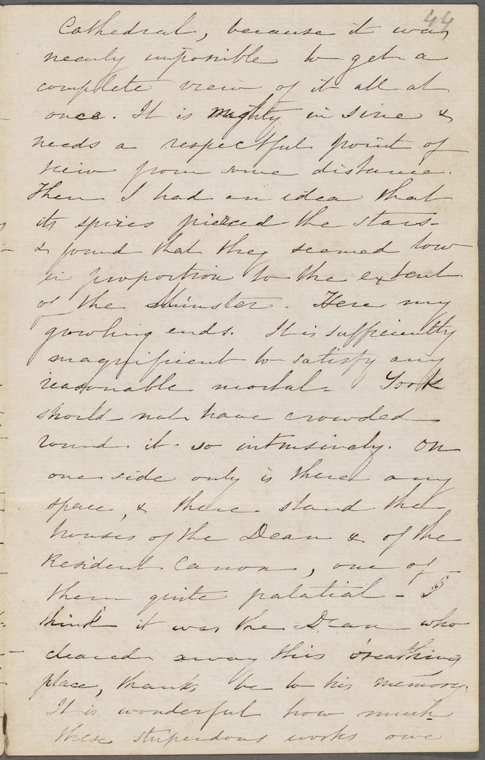 44
Cathedral, because it was
nearly impossible to get a
complete view of it all at
once. It is mighty in size &
needs a respectful point of
view from some distance.
Then I had an idea that
its spires pierced the stars -
& found that they seemed low
in proportion to the extent
of the Minster. Here my
growling ends. It is sufficiently
magnificent to satisfy any
reasonable mortal - York
should not have crowded
round it so intrusively. On
one side only is there any
space, & there stand the
houses of the Dean & of the
Resident Canon, one of
them quite palatial - I
think it was the Dean who
cleared away this breathing
place, thanks be to his memory.
It is wonderful how much
these stupendous works owe